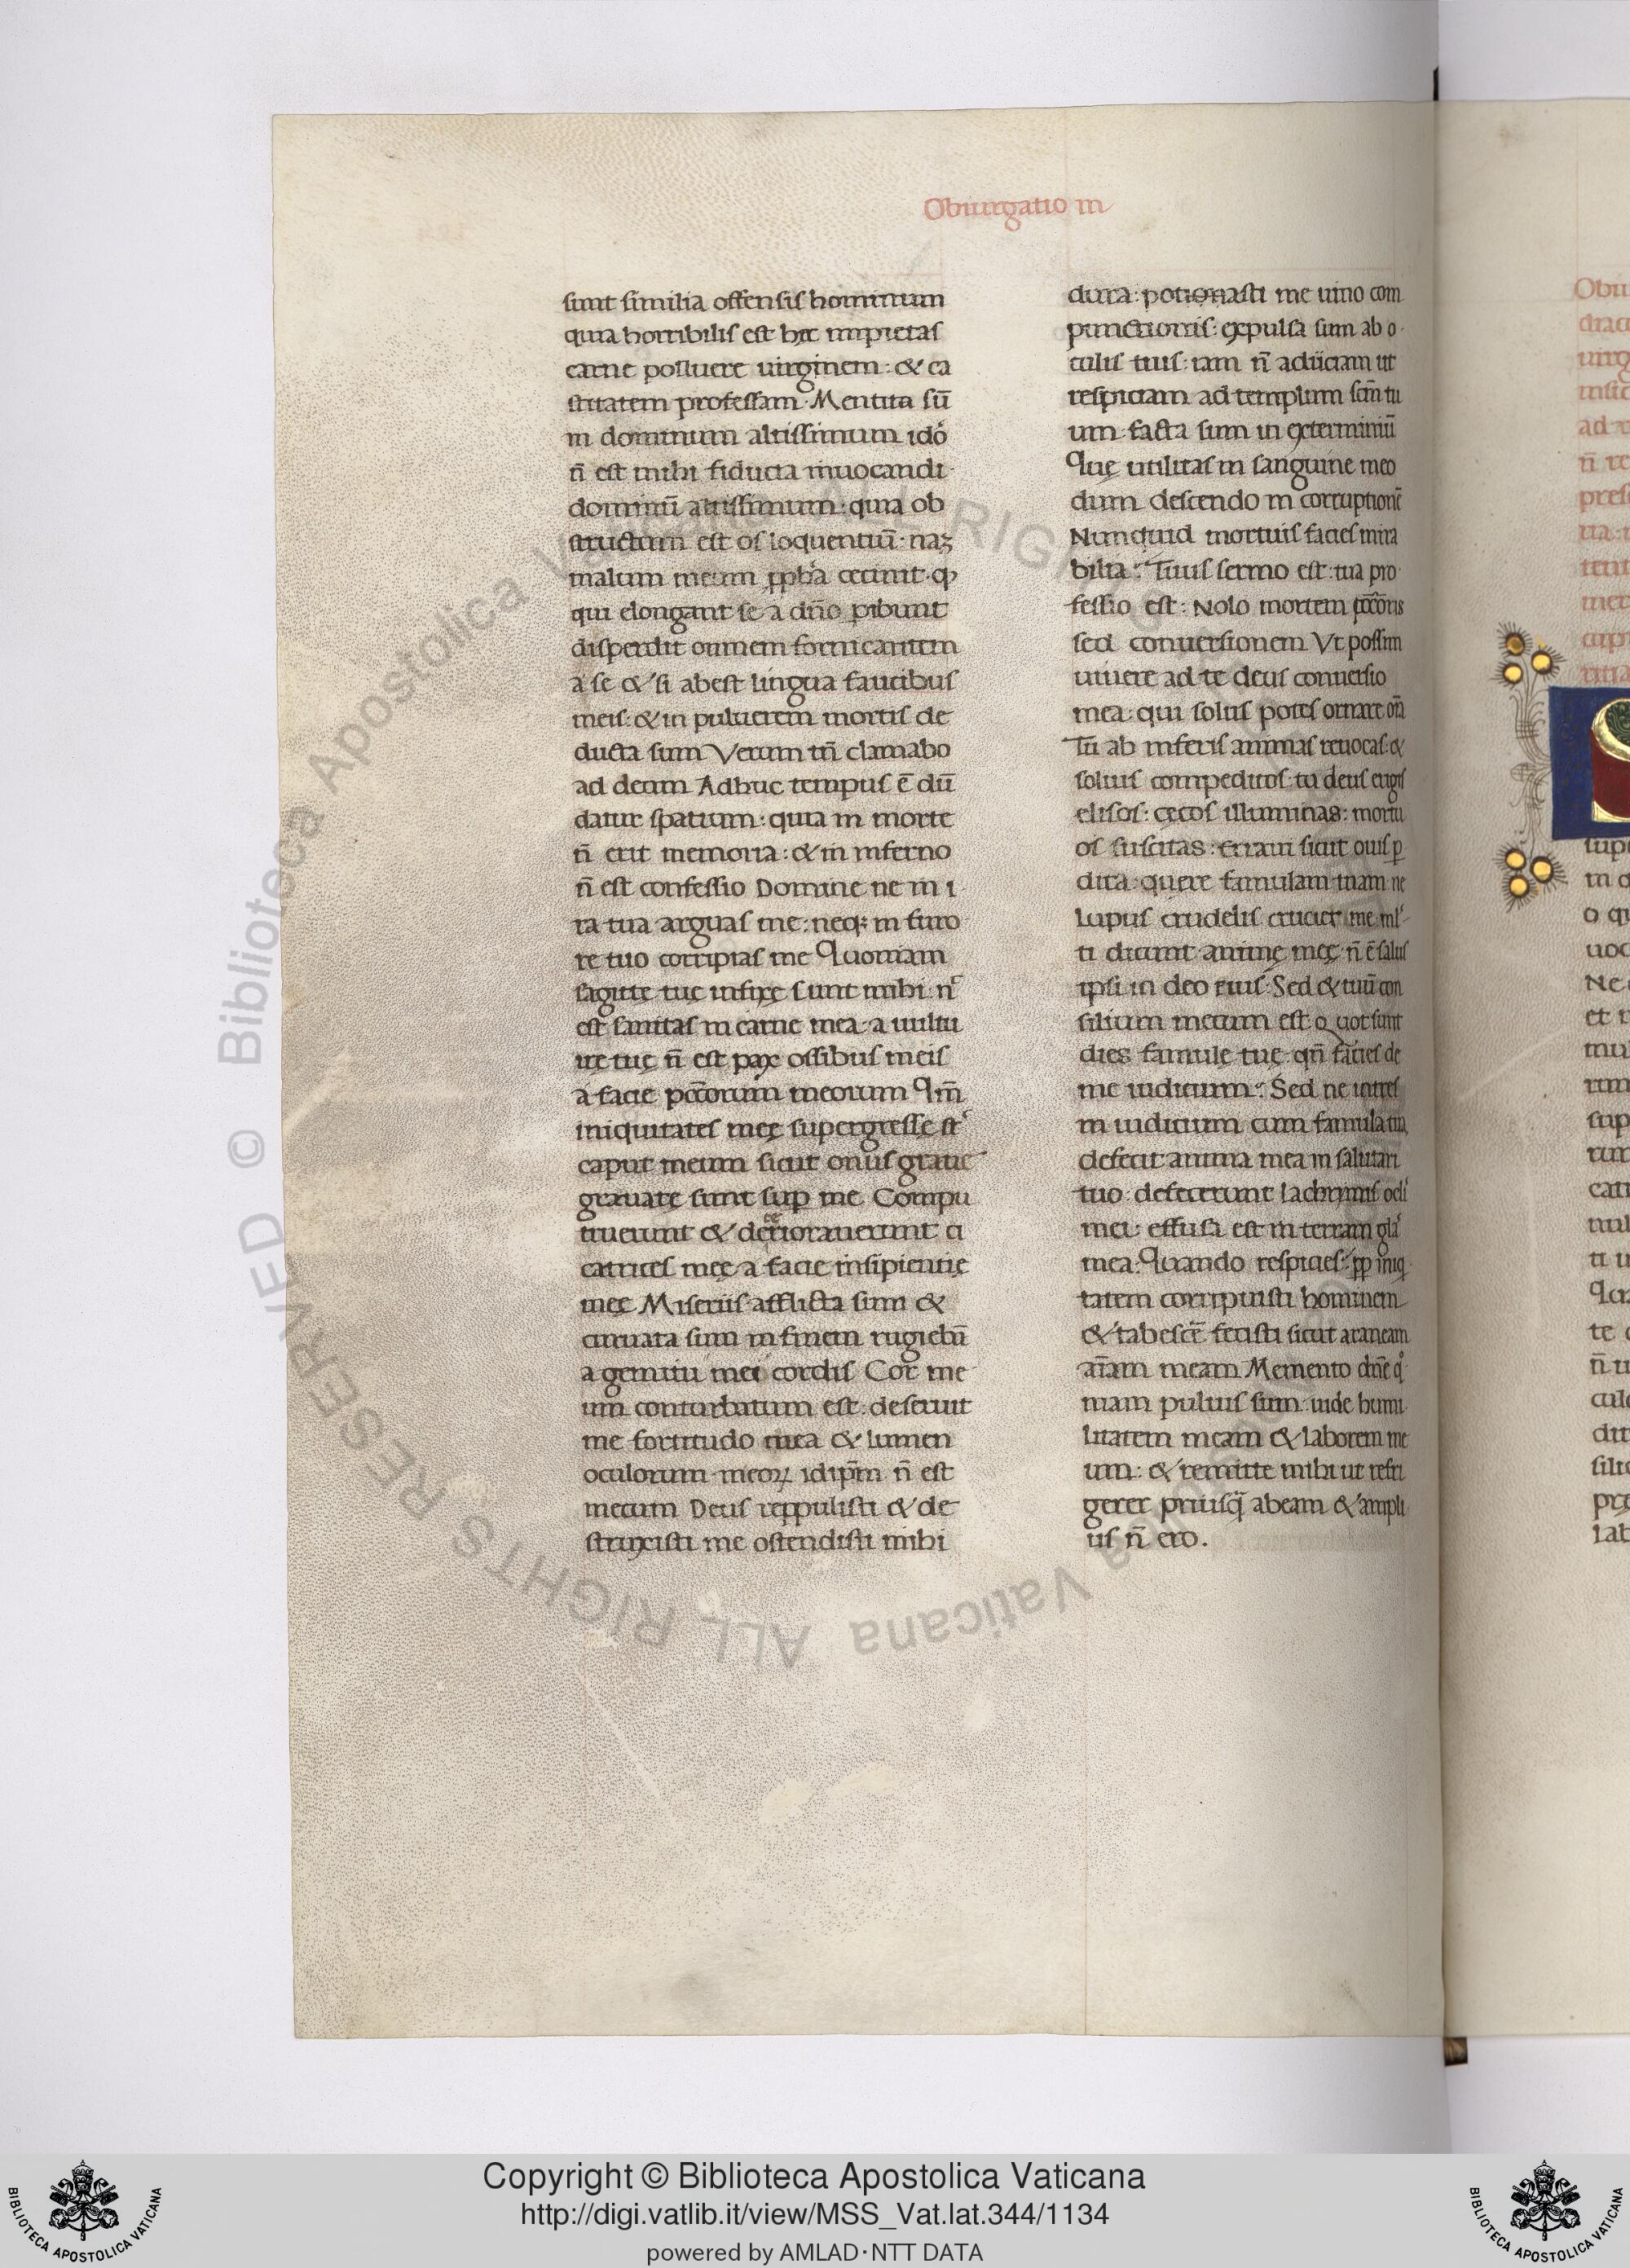 Obiurgatio in
sunt similia offensis hominum
quia horribilis est hęc impietas
carne polluere uirginem: & ca
stitatem professam. Mentita sū
in dominum altissimum idō
n̄ est mihi fiducia inuocandi
dominū altissimum: quia ob
structum est os loquentiū: naʒ
malum meum ꝓpha cecinit. ꝙ
qui elongant se a dn̄o pibunt
disperdit omnem fornicantem
a se & si abest lingua faucibus
meis: & in puluerem mortis de
ducta sum Verum tn̄ clamabo
ad deum Adhuc tempus ē dū
datur spatium: quia in morte
n̄ erit memoria: & in inferno
n̄ est confessio Domine ne in i
ra tua arguas me: neqꝫ in furo
re tuo corripias me Quoniam
sagitte tuę infixę sunt mihi n̄
est sanitas in carne mea a uultu
irę tuę n̄ est pax ossibus meis
a facie pcc̄orum meorum Qm̄
iniquitates meę supergresse st̄
caput meum sicut onus graue
grauatę sunt suꝑ me. Compu
truerunt & deteriorauerunt ci
catrices meę a facie insipientię
meę Miseriis afflicta sum &
curuata sum in finem rugiebā
a gemitu mei cordis Cor me
um conturbatum est: deseruit
me fortitudo mea & lumen
oculorum meoꝝ idip̄m n̄ est
mecum Deus reppulisti & de
struxisti me ostendisti mihi
dura: potionasti me uino com
punctionis: expulsa sum ab o
culis tuis: iam n̄ adiiciam ut
respiciam ad templum scm̄ tu
um facta sum in exterminiū
Quę utilitas in sanguine meo
dum descendo in corruptionē
Nunquid mortuis facies mira
bilia: Tuus sermo est: tua pro
fessio est: Nolo mortem pcc̄oris
sed conuersionem Vt possim
uiuere ad te deus conuersio
mea: qui solus potes ornare om̄
Tu ab inferis animas reuocas: &
soluis compeditos: tu deus erigis
elisos: cęcos illuminas: mortu
os suscitas: erraui sicut ouis ꝑ
dita: quere famulam tuam ne
lupus crudelis cruciet me ml̄
ti dicunt animę meę n̄ ē salus
ipsi in deo eius: Sed & tuū con
silium mecum est. Quot sunt
dies famulę tuę: qn̄ facies de
me iudicium: Sed ne intres
in iudicium cum famula tua
defecit anima mea in salutari
tuo: defecerunt lachrymis ocl̄i
mei: effusa est in terram gl̄a
mea: Quando respicies: ꝓp iniq
tatem corripuisti hominem
& tabescē fecisti sicut araneam
an̄am meam Memento dn̄e qͦ
niam puluis sum: uide humi
litatem meam & laborem me
um: & remitte mihi ut refri
gerer priusꝗ̄ abeam & ampli
us n̄ ero.
Copyright © Biblioteca Apostolica Vaticana
http://digi.vatlib.it/view/MSS_Vat.lat.344/1134
powered by AMLAD·NTT DATA